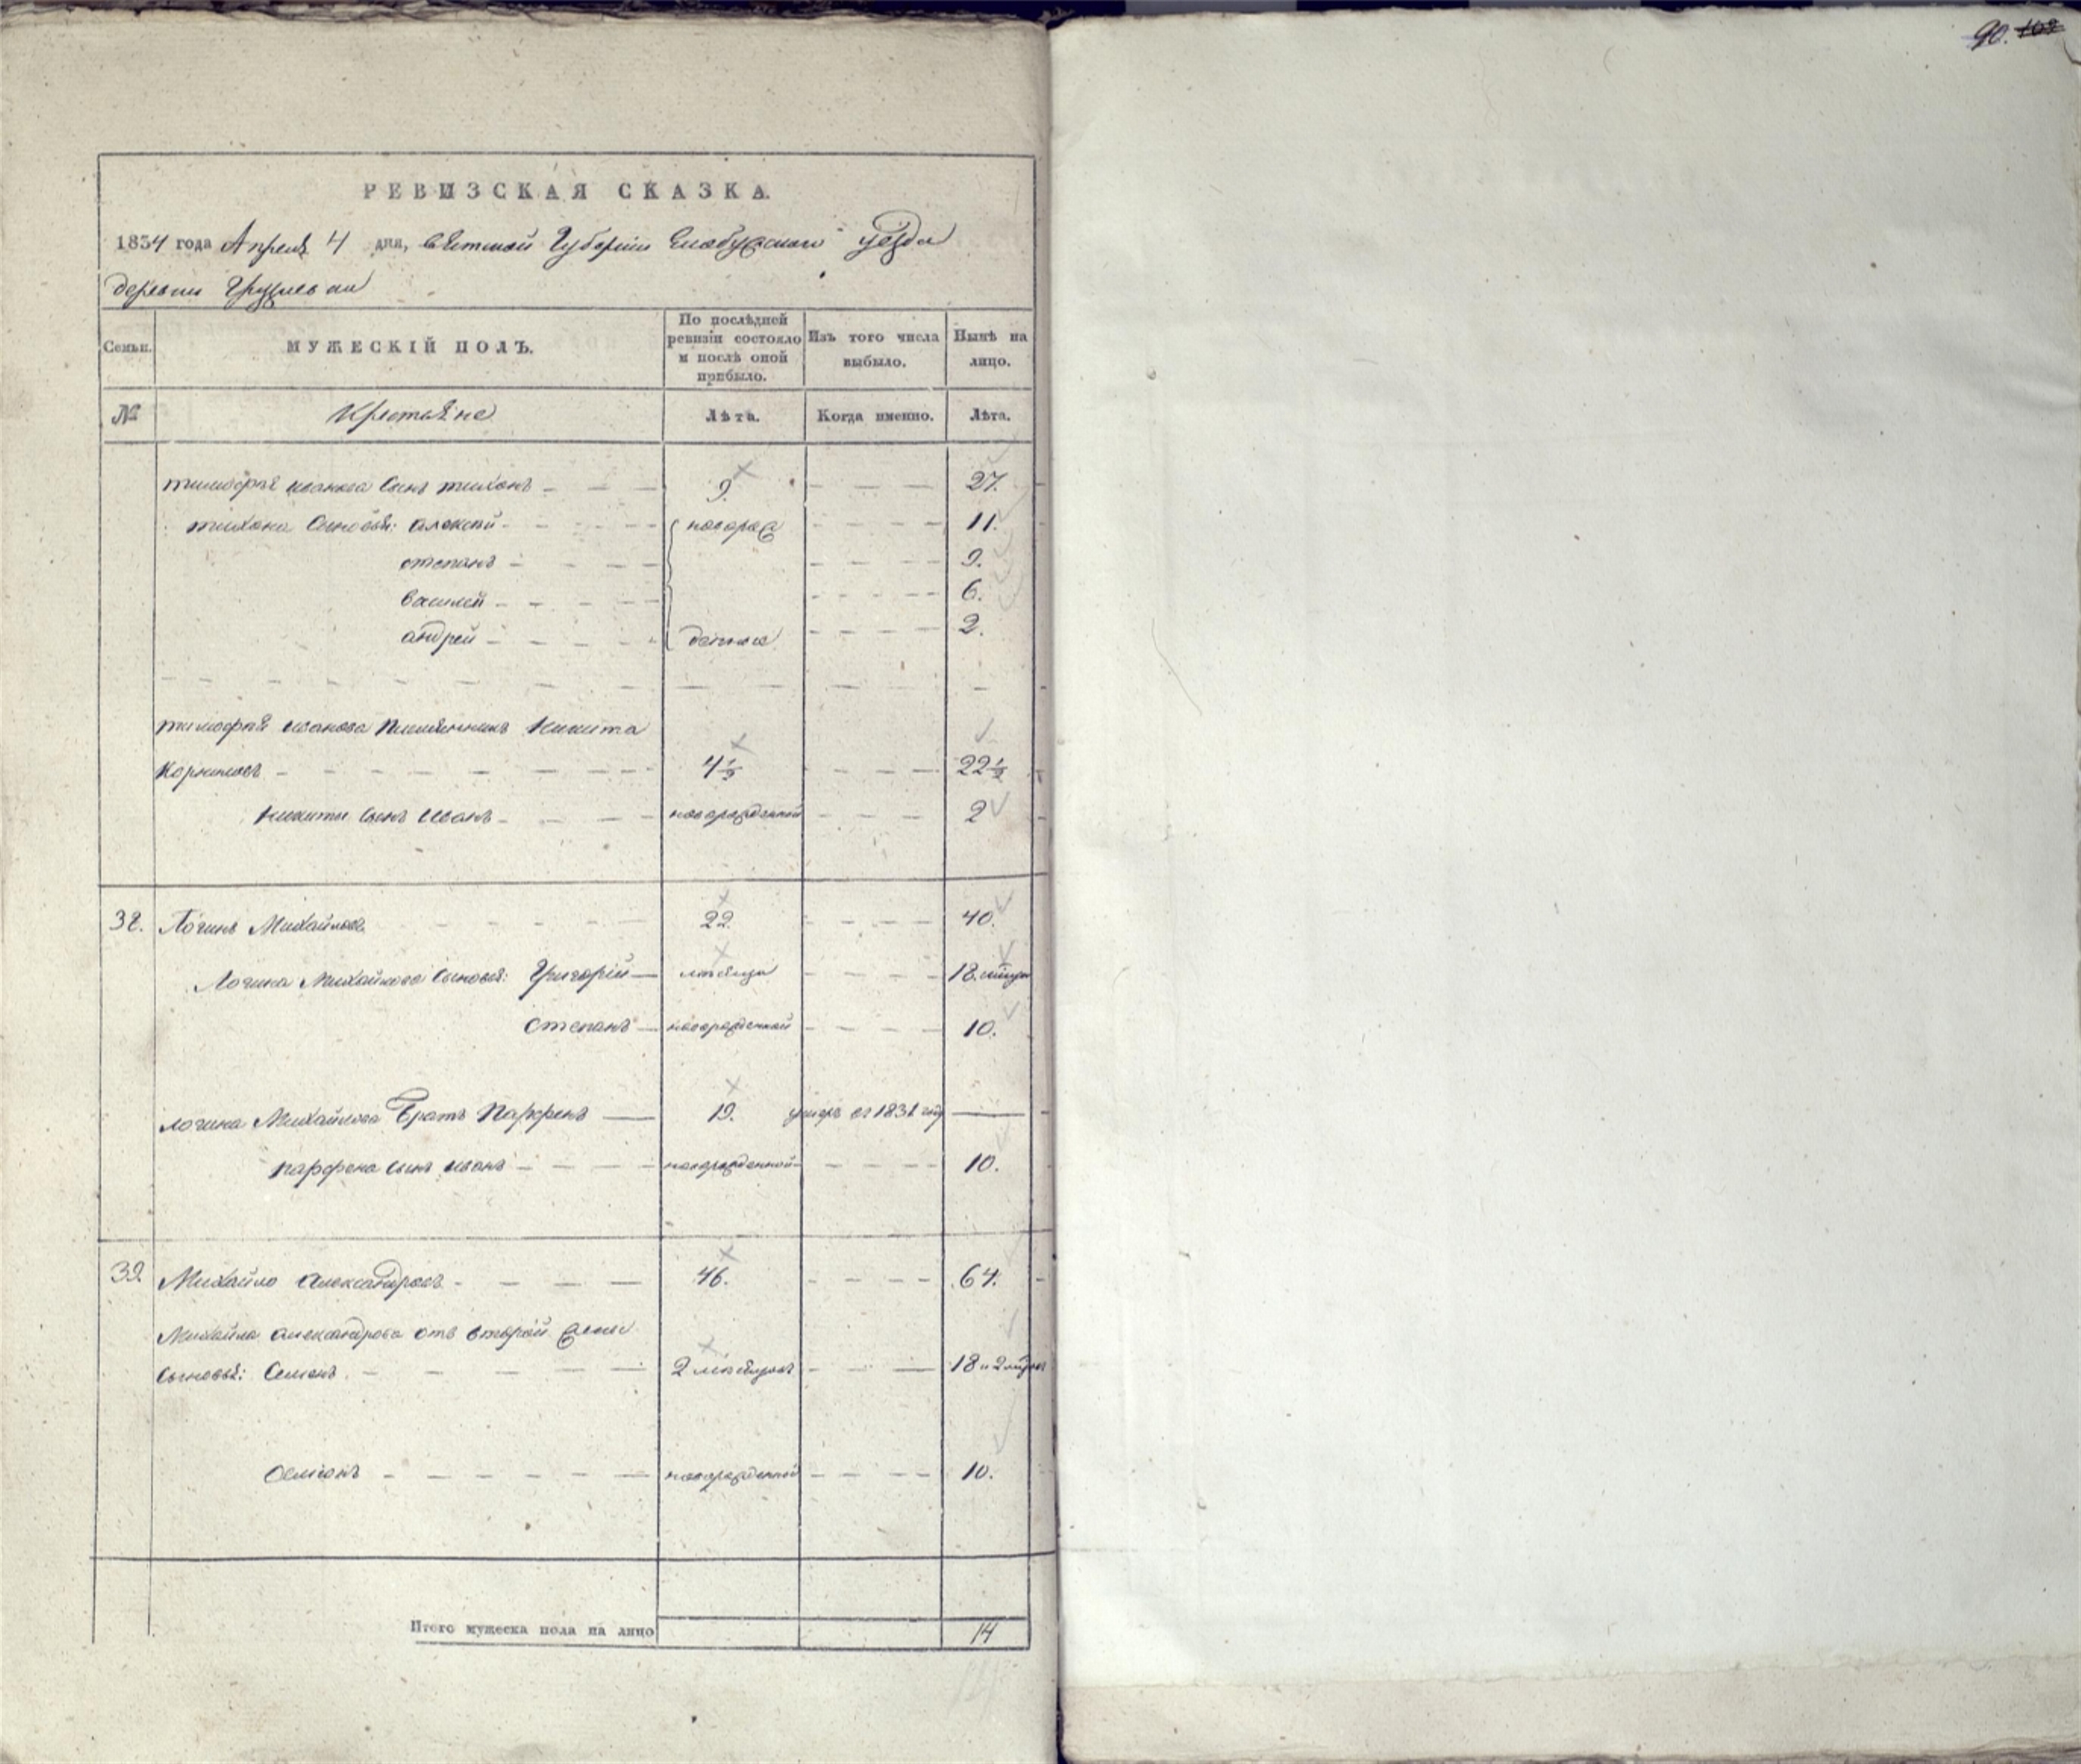 90. 102
РЕВИЗСКАЯ СКАЗКА.
1834 года Апреля 4 дня, вятской Губернии Елабужского уезда
деревни
Семьи. МУЖЕСКІЙ ПОЛЪ. По послѣдней ревизіи состояло и послѣ оной прибыло. Изъ того числа выбыло. Нынѣ на лицо.
№ Крестьяне Лѣта. Когда именно. Лѣта.
тимофея иванова сынъ тихонъ 9. 27.
тихона сыновья: алексей новорож 11.
степанъ 9.
василей 6.
андрей денные 2.
тимофея иванова племянникъ никита
Корниловъ 4½ 22½
никиты сынъ иванъ новорожденной 2
38. Логинъ Михайловъ 22. 40.
Логина Михайлова сыновья: Григорій 18.
степанъ новорожденной 10.
логина Михайлова братъ Парфенъ 19. умеръ въ 1831 году
парфена сынъ иванъ новорожденной 10.
39. Михайло александровъ 46. 64.
Михайла александрова отъ второй жены
сыновья: Семенъ 2 18 и 2
новорожденной 10.
Итого мужеска пола на лицо 14